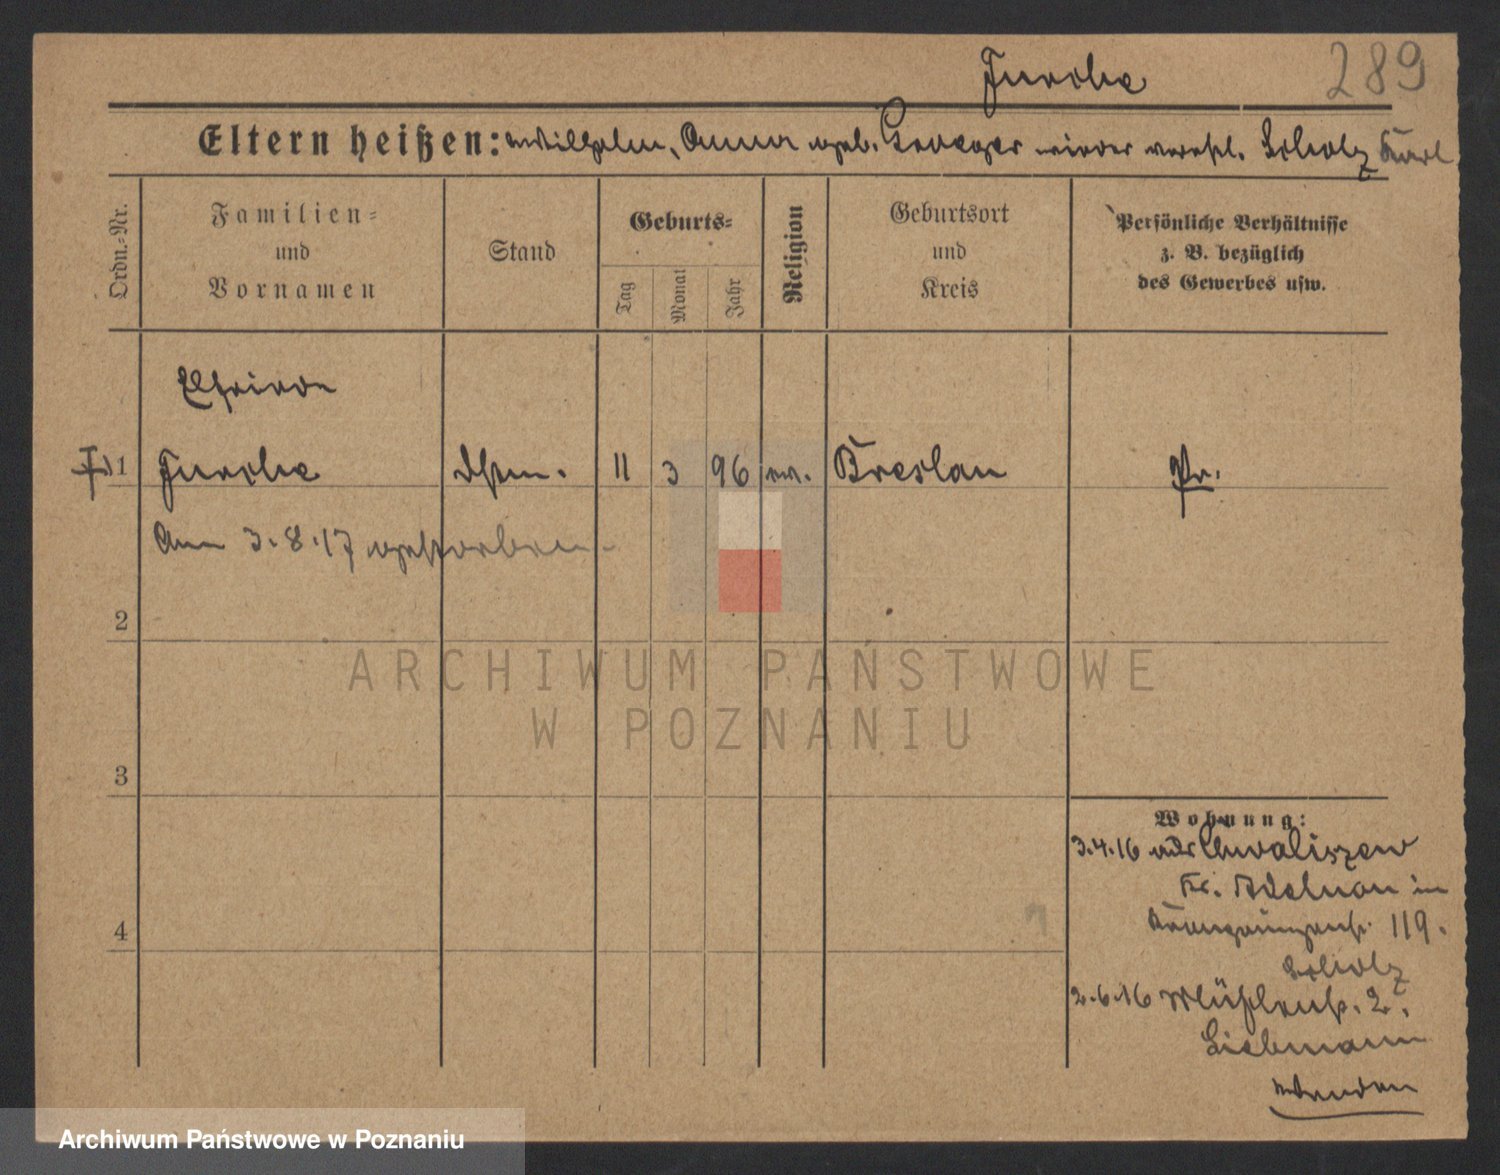 Furche
289
Eltern heißen: Wilhelm, Anna geb. wieder verehl. Scholz Karl
Ordn.-Nr.
Familien-
und
Vornamen
Stand
Geburts-
Tag
Monat
Jahr
Religion
Geburtsort
und
Kreis
Persönliche Verhältnisse
z. B. bezüglich
des Gewerbes usw.
Elfriede
1 Furche 11 3 96 ev. Breslau Pr.
Am 3.8.17 gestorben.
2
3
4
Wohnung:
3.4.16 aus Chwaliszew
Kr. Adelnau in
119.
Scholz
2.6.16 Mühlenstr. 2.
Liebmann
wenden
ARCHIWUM PAŃSTWOWE
W POZNANIU
Archiwum Państwowe w Poznaniu